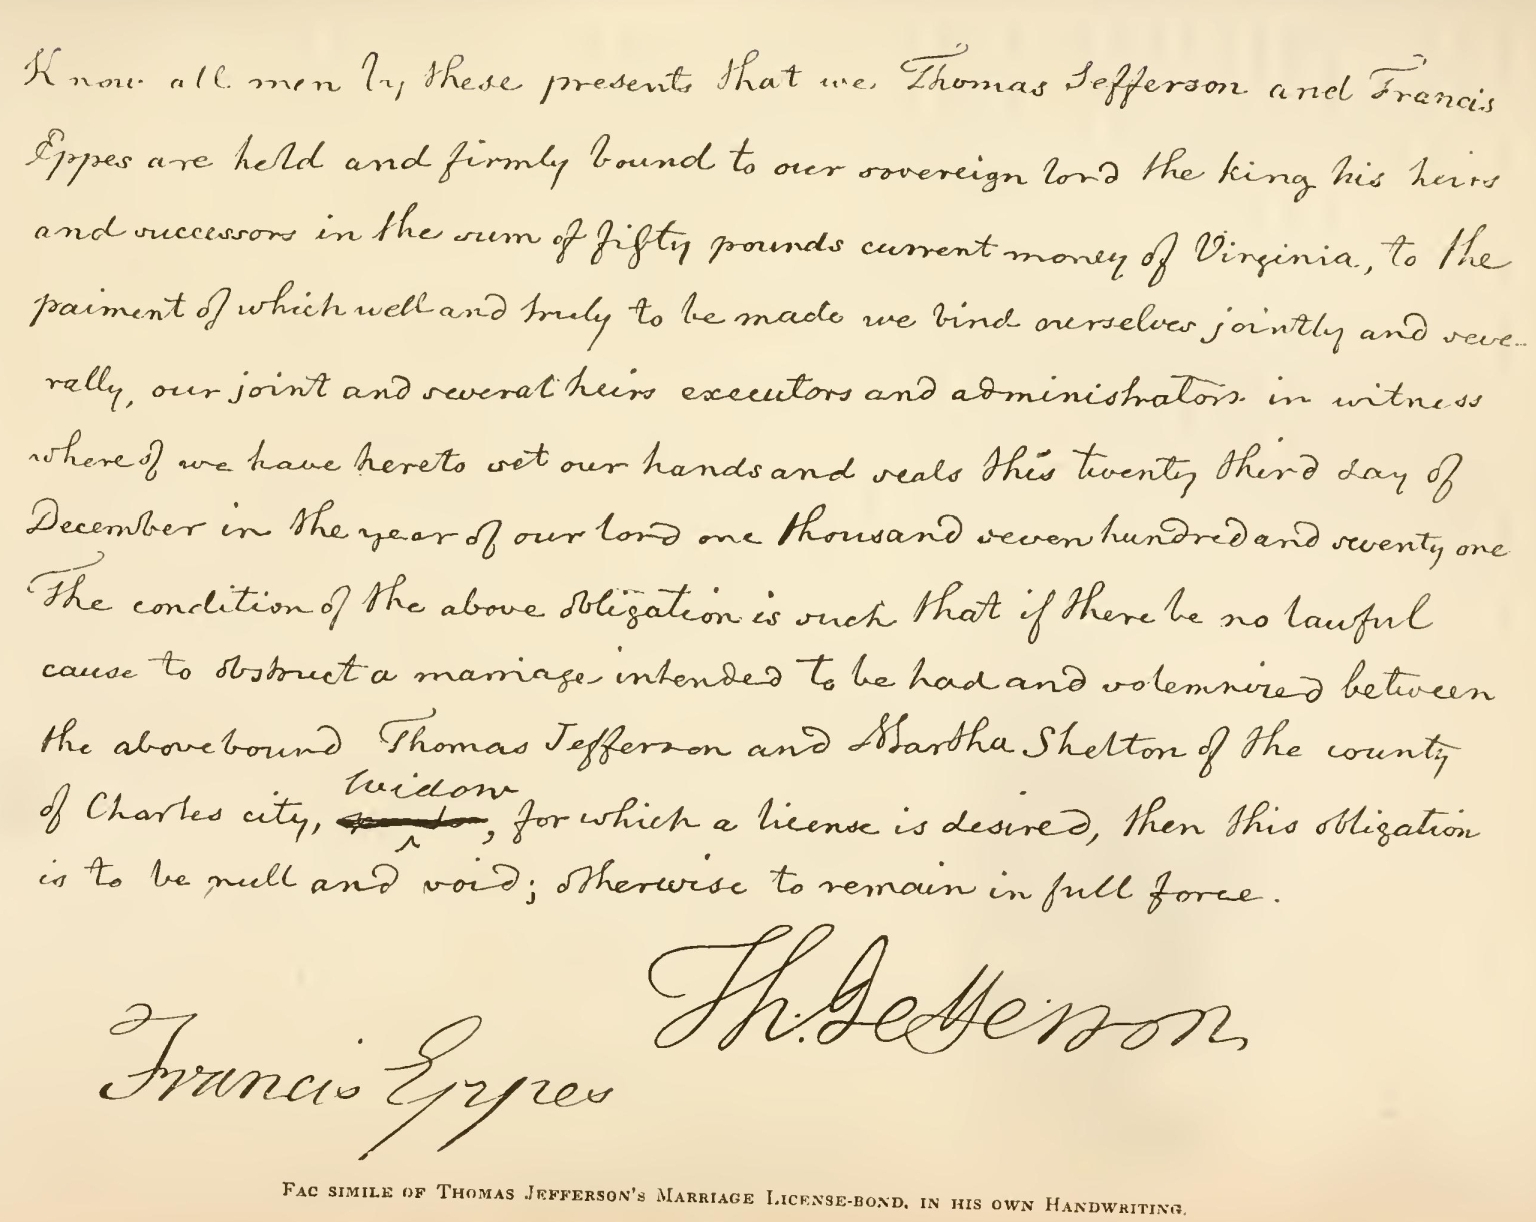 Know all men by these presents that we Thomas Jefferson and Francis
Eppes are held and firmly bound to our sovereign lord the king his heirs
and successors in the sum of fifty pounds current money of Virginia, to the
paiment of which well and truly to be made we bind ourselves jointly and seve-
rally, our joint and several heirs executors and administrators in witness
whereof we have hereto set our hands and seals this twenty third day of
December in the year of our lord one thousand seven hundred and seventy one
The condition of the above obligation is such that if there be no lawful
cause to obstruct a marriage intended to be had and solemnized between
the abovebound Thomas Jefferson and Martha Skelton of the county
Widow
of Charles city, , for which a license is desired, then this obligation
is to be null and void; otherwise to remain in full force.
Th. Jefferson
Francis Eppes
FAC SIMILE OF THOMAS JEFFERSON'S MARRIAGE LICENSE-BOND, IN HIS OWN HANDWRITING.